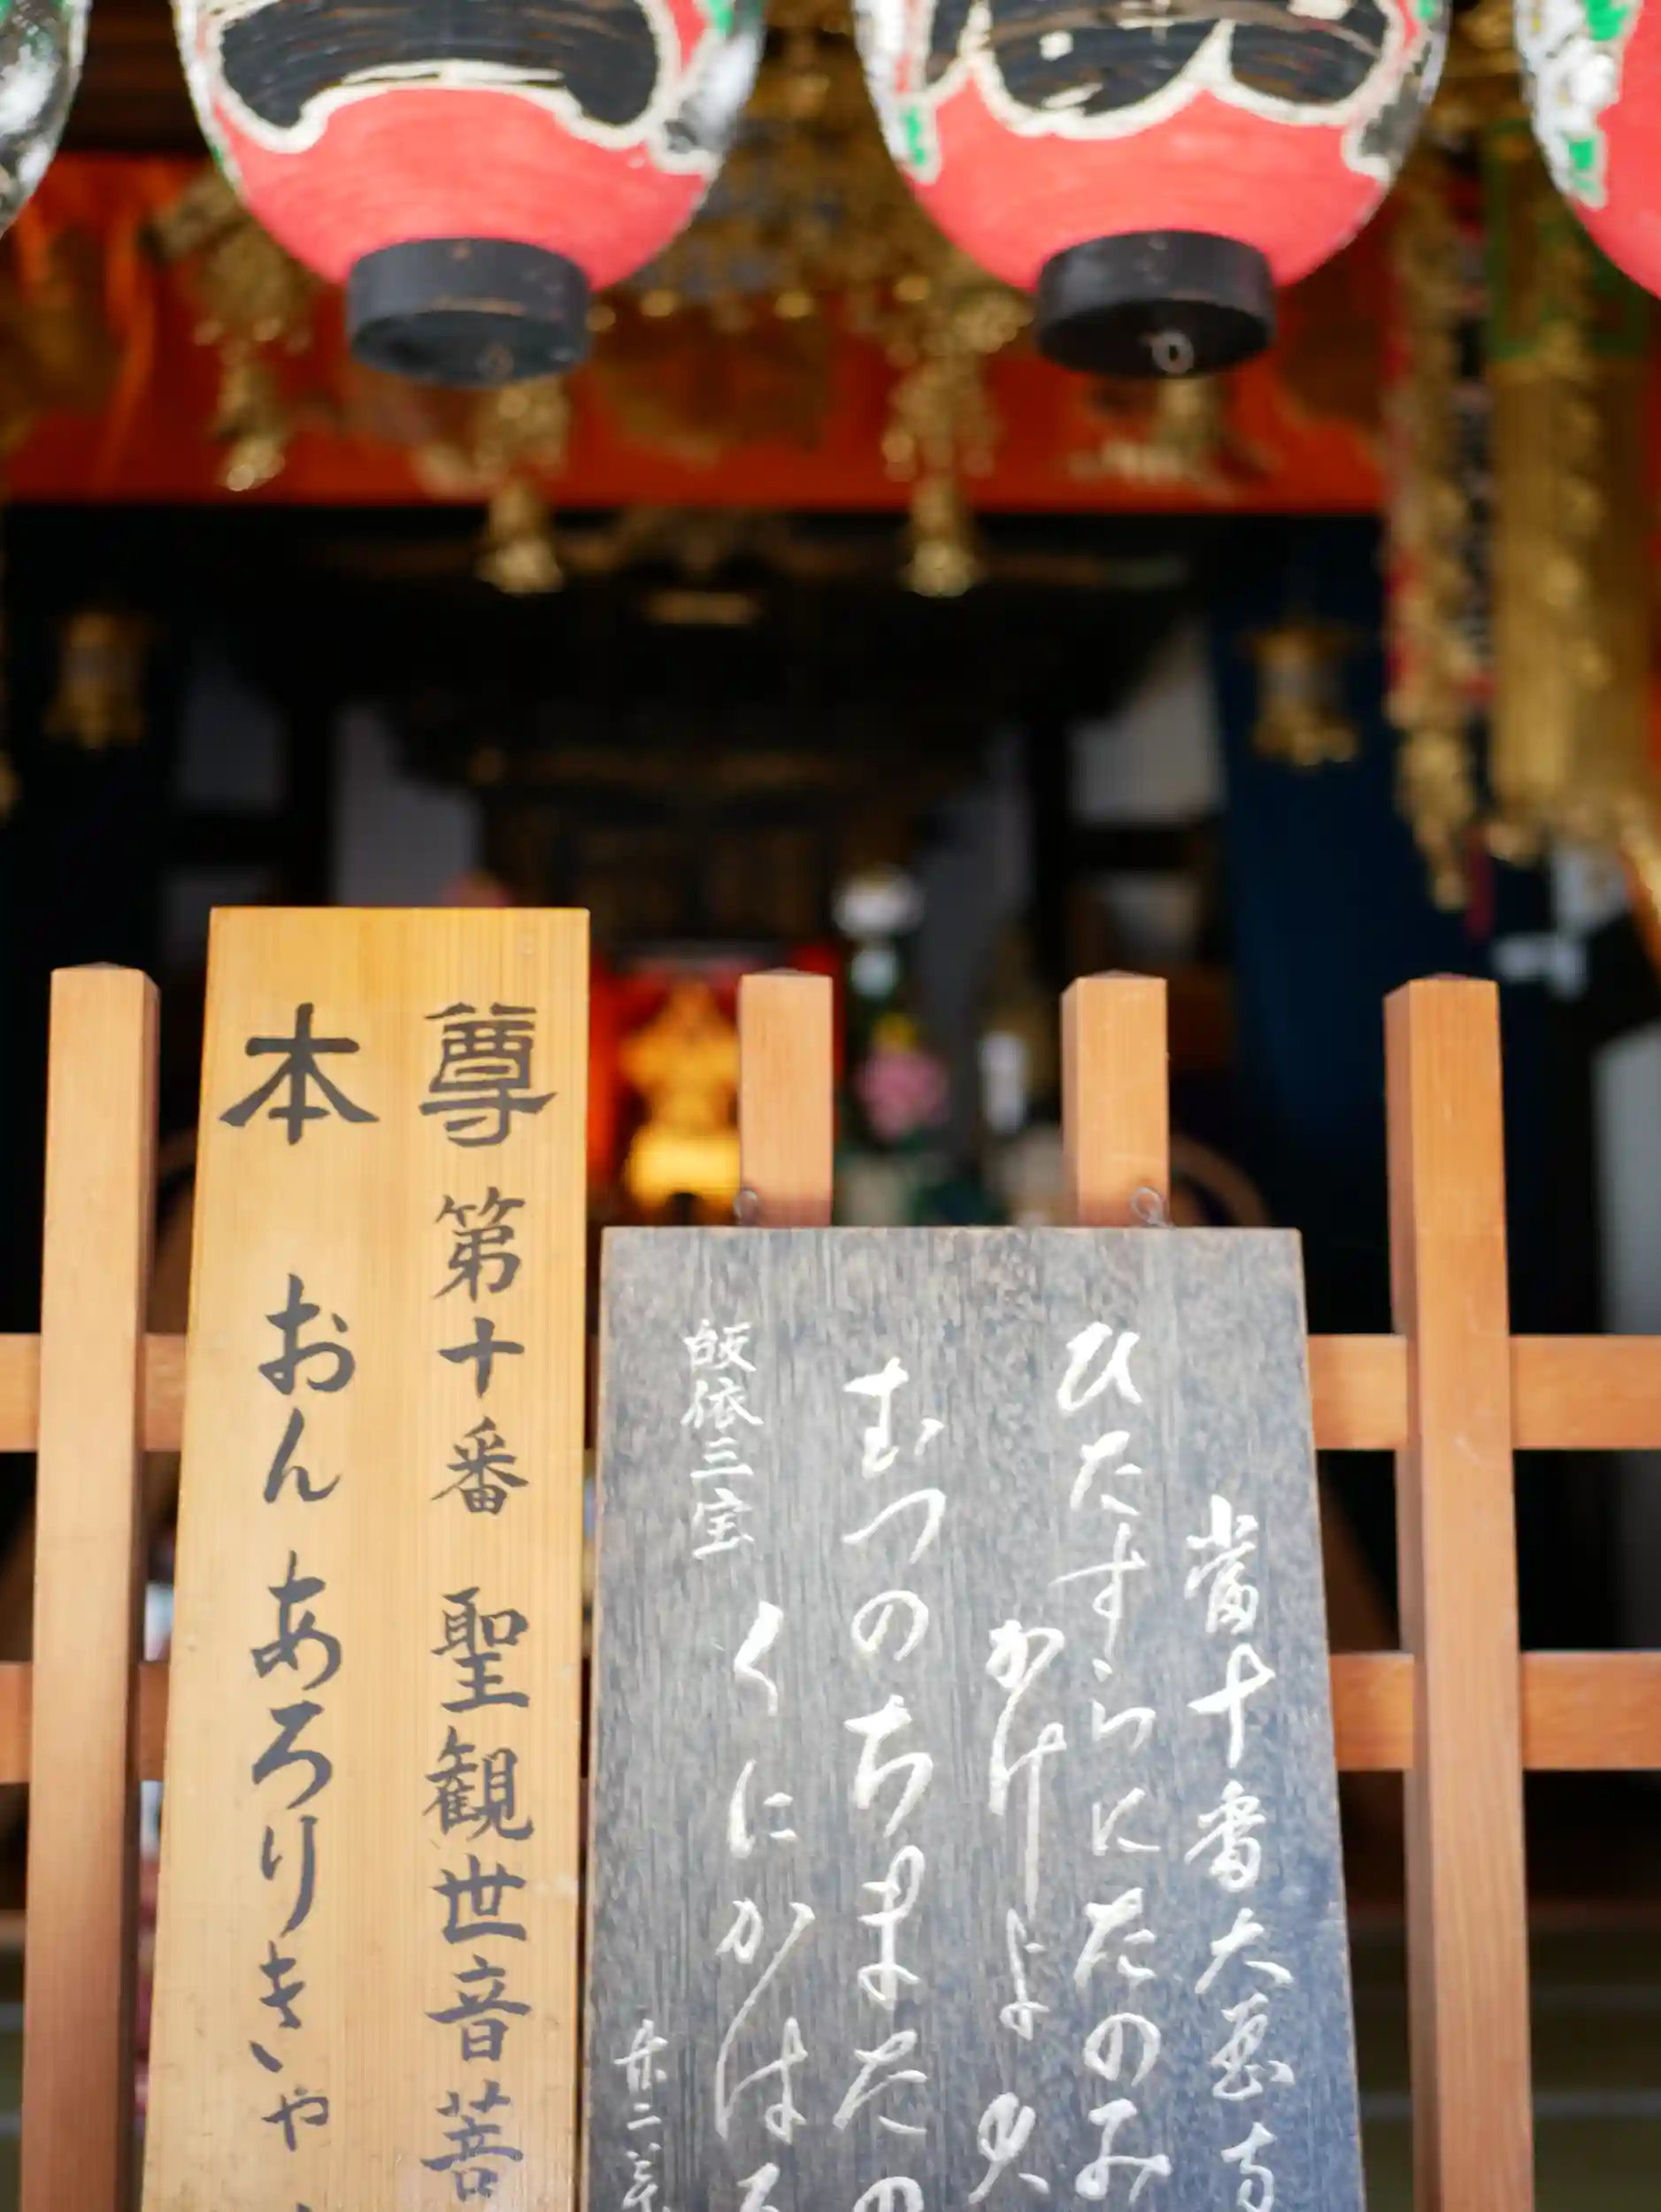 本尊
第十番 聖観世音菩
おん あろりきゃ
當十番大慈寺
ひたすらにたのみ
かけよ 大
むつのちまたの
くにかはる
皈依三宝